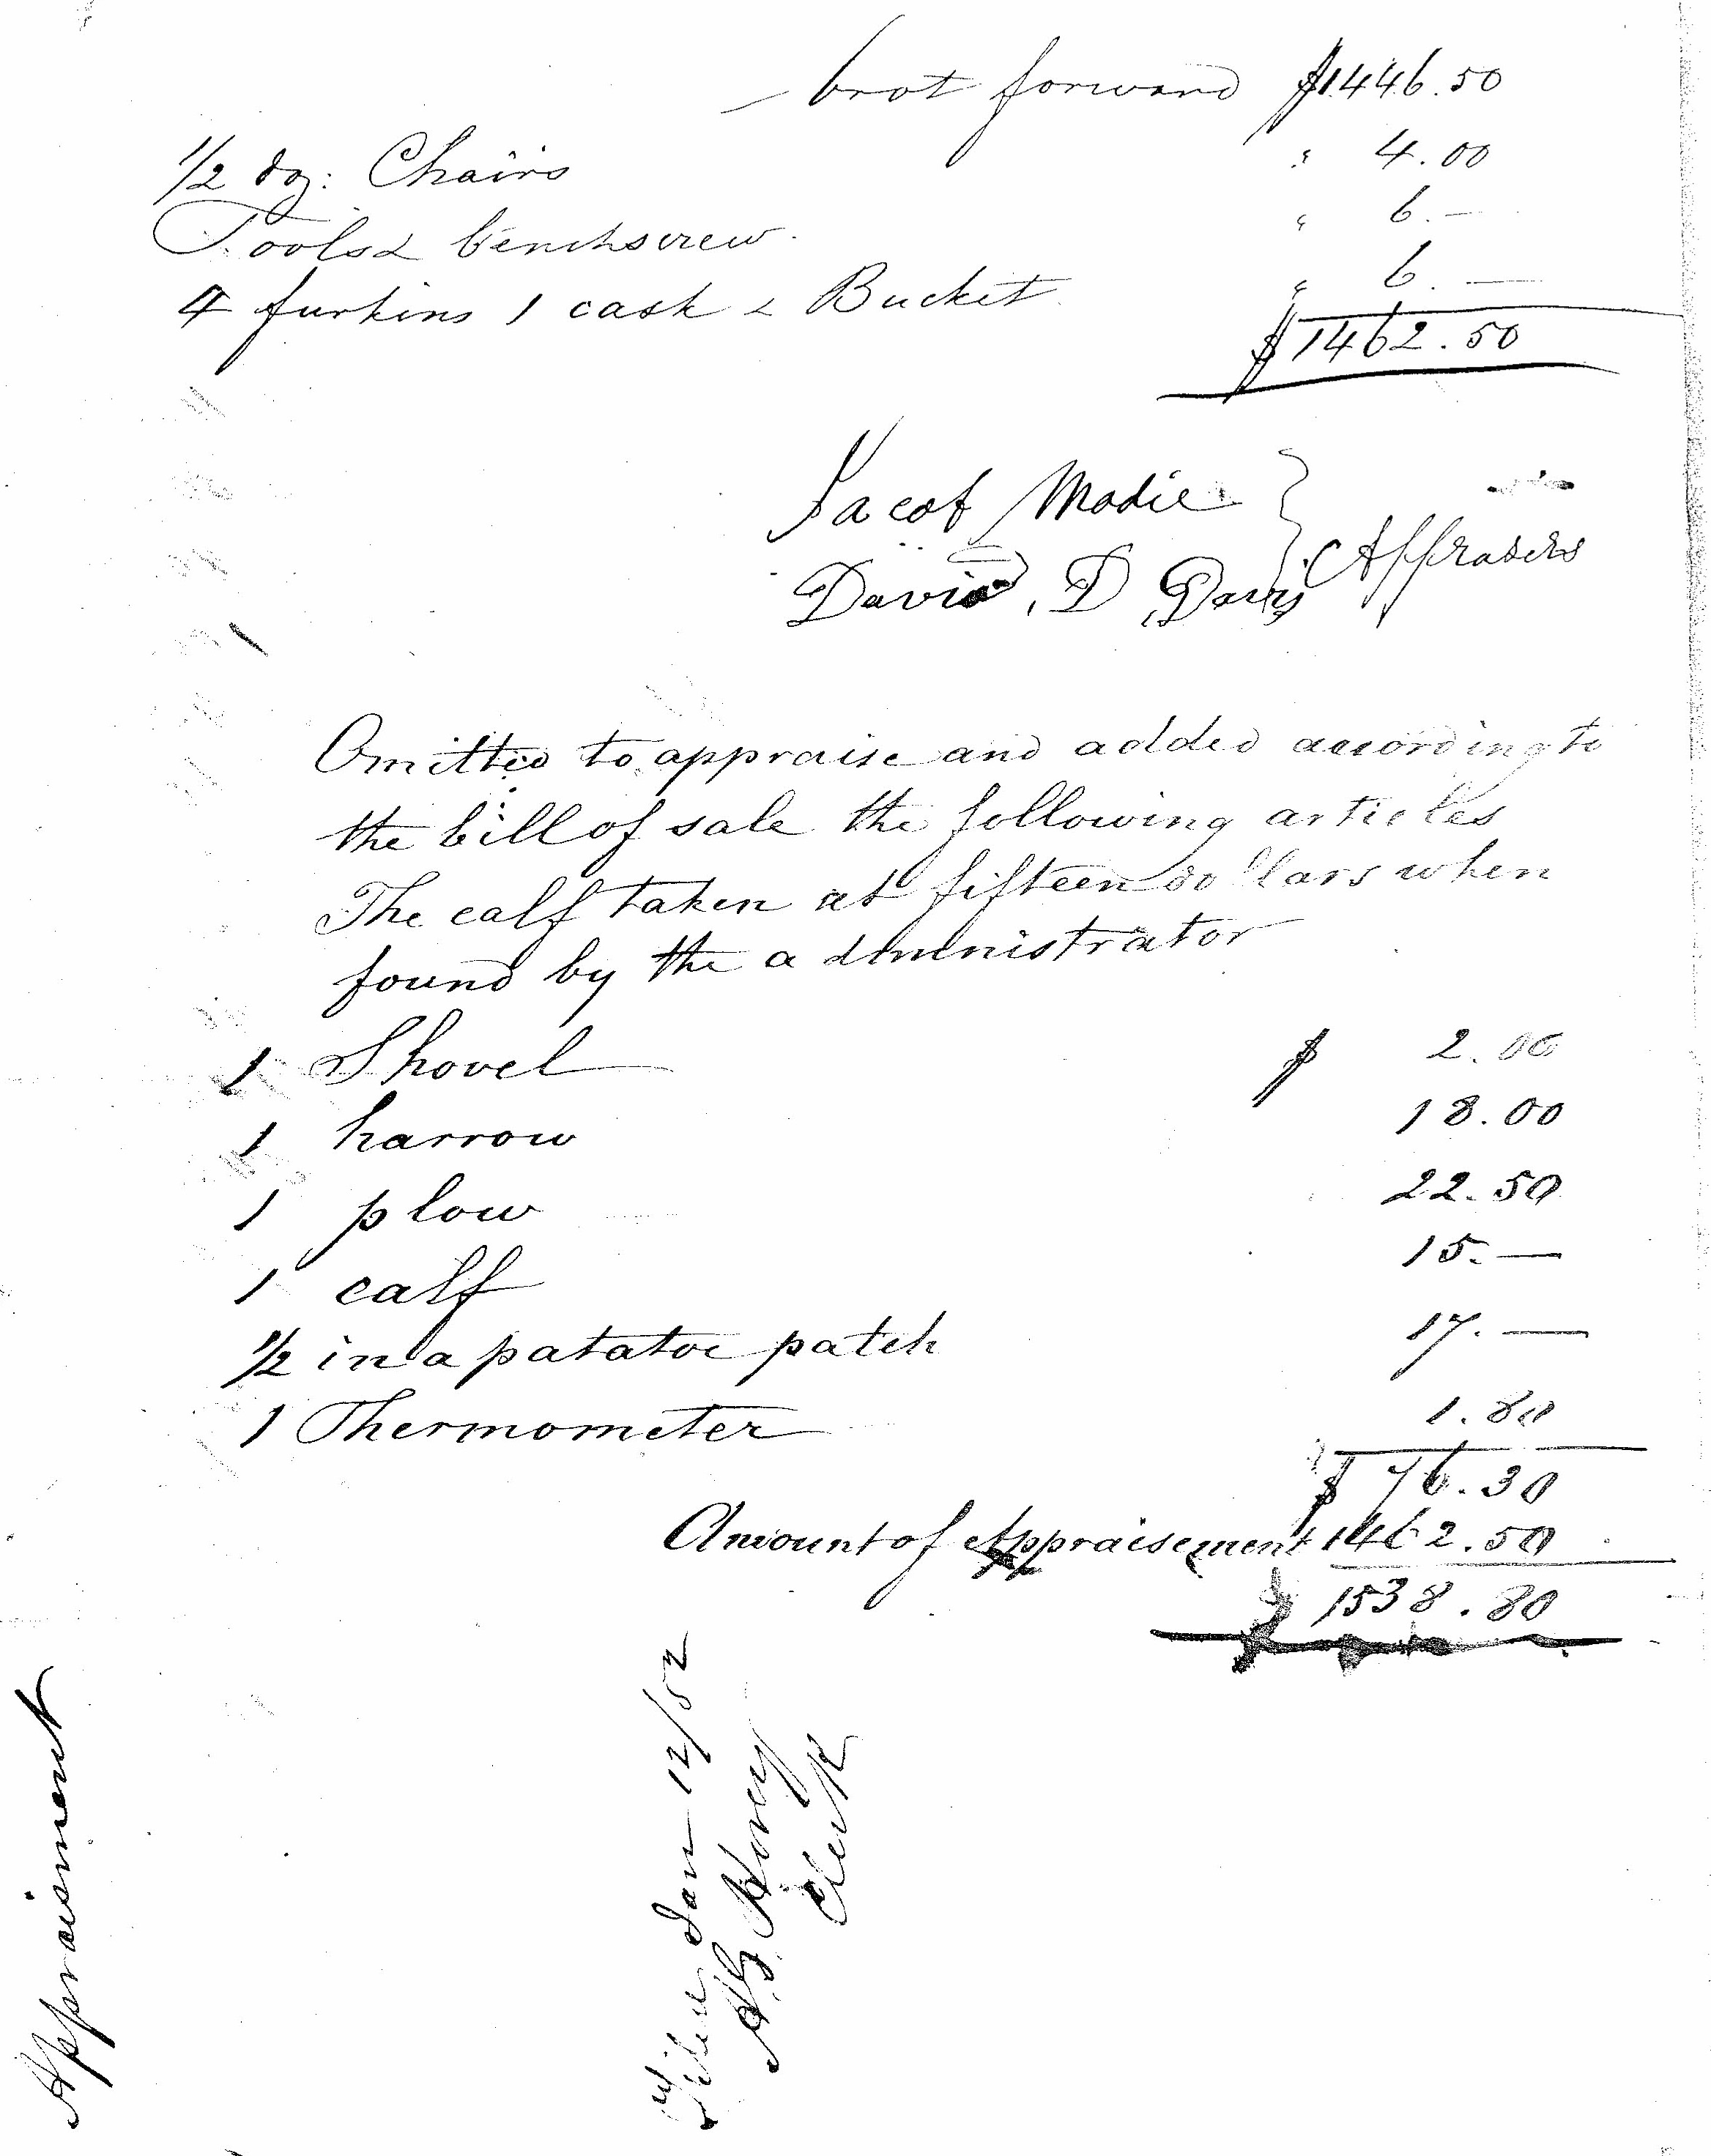 brot forward $1446.50
1/2 doz: Chairs " 4.00
Tools & benchscrew. " 6.—
4 furkins 1 cask & Bucket " 6.—
$1462.50
Jacob Modie
David, D Davis } Apprasers
Omitted to appraise and added according to
the bill of sale the following articles
The calf taken at fifteen dollars when
found by the administrator
1 Shovel $ 2.00
1 harrow 18.00
1 plow 22.50
1 calf 15.—
1/2 in a patatoe patch 17.—
1 Thermometer 1.80
$ 76.30
Amount of Appraisement 1462.50
$ 1538.80
Appraisment
Filed Jan 12/52
Clerk